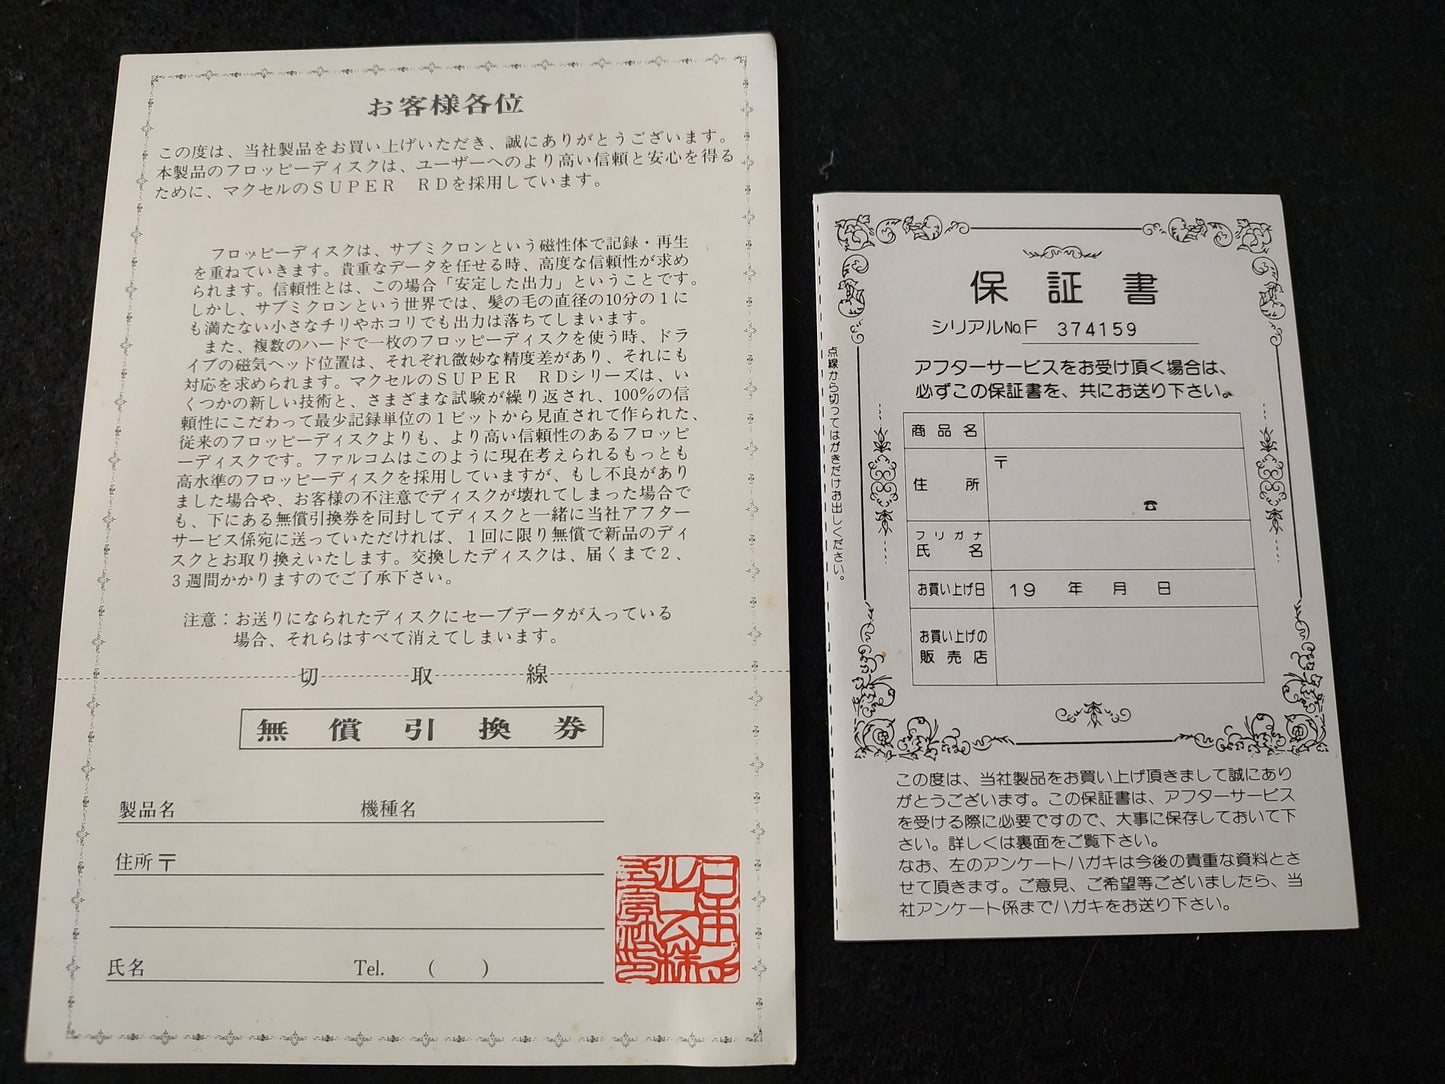 お客様各位
この度は、当社製品をお買い上げいただき、誠にありがとうございます。
本製品のフロッピーディスクは、ユーザーへのより高い信頼と安心を得る
ために、マクセルのＳＵＰＥＲ　ＲＤを採用しています。
フロッピーディスクは、サブミクロンという磁性体で記録・再生
を重ねていきます。貴重なデータを任せる時、高度な信頼性が求め
られます。信頼性とは、この場合「安定した出力」ということです。
しかし、サブミクロンという世界では、髪の毛の直径の10分の１に
も満たない小さなチリやホコリでも出力は落ちてしまいます。
また、複数のハードで一枚のフロッピーディスクを使う時、ドラ
イブの磁気ヘッド位置は、それぞれ微妙な精度差があり、それにも
対応を求められます。マクセルのＳＵＰＥＲ　ＲＤシリーズは、い
くつかの新しい技術と、さまざまな試験が繰り返され、100％の信
頼性にこだわって最少記録単位の１ビットから見直されて作られた、
従来のフロッピーディスクよりも、より高い信頼性のあるフロッピ
ーディスクです。ファルコムはこのように現在考えられるもっとも
高水準のフロッピーディスクを採用していますが、もし不良があり
ました場合や、お客様の不注意でディスクが壊れてしまった場合で
も、下にある無償引換券を同封してディスクと一緒に当社アフター
サービス係宛に送っていただければ、１回に限り無償で新品のディ
スクとお取り換えいたします。交換したディスクは、届くまで２、
３週間かかりますのでご了承下さい。
注意：お送りになられたディスクにセーブデータが入っている
場合、それらはすべて消えてしまいます。
切　取　線
無償引換券
製品名　機種名
住所〒
氏名　Tel.　(　　)
日本ファルコム株式会社印
点線から切ってはがきだけお出しください。
保証書
シリアルNo.F 374159
アフターサービスをお受け頂く場合は、
必ずこの保証書を、共にお送り下さい。
商品名
住所　〒
☎
フリガナ
氏名
お買い上げ日　19　年　月　日
お買い上げの
販売店
この度は、当社製品をお買い上げ頂きまして誠にあり
がとうございます。この保証書は、アフターサービス
を受ける際に必要ですので、大事に保存しておいて下
さい。詳しくは裏面をご覧下さい。
なお、左のアンケートハガキは今後の貴重な資料とさ
せて頂きます。ご意見、ご希望等ございましたら、当
社アンケート係までハガキをお送り下さい。